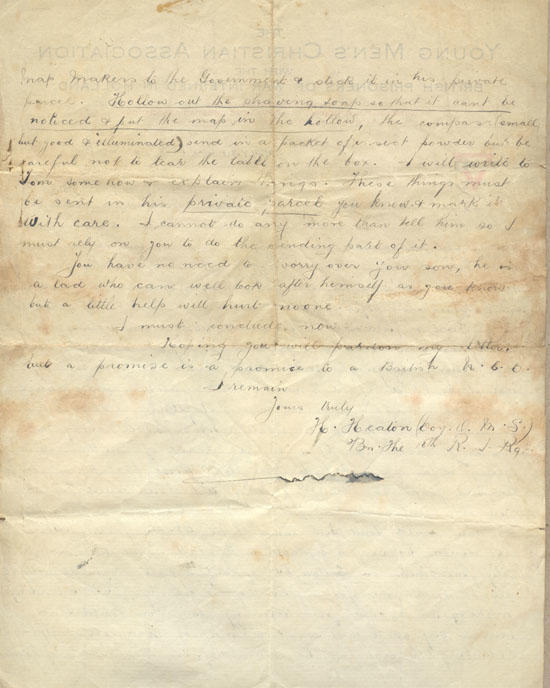 THE
YOUNG MEN'S CHRISTIAN ASSOCIATION
BRITISH PRISONERS OF WAR INTERNED IN HOLLAND
Map Makers to the Government & stick it in his private
parcel. Hollow out the shaving soap so that it cant be
noticed & put the map in the hollow, the compass (small
but good & illuminated) send in a packet of insect powder but be
careful not to tear the label on the box. I will write to
Tom somehow & explain things. These things must
be sent in his private parcel you know & mark it
with care. I cannot do any more than tell him so I
must rely on you to do the sending part of it.
You have no need to worry over your son, he is
a lad who can well look after himself as you know
but a little help will hurt noone.
I must conclude now
Hoping you will pardon my letter
but a promise is a promise to a British N.C.O.
I remain
Yours truly
H. Heaton (Coy. Q. M. S.)
Bn. The R. I. Rg.